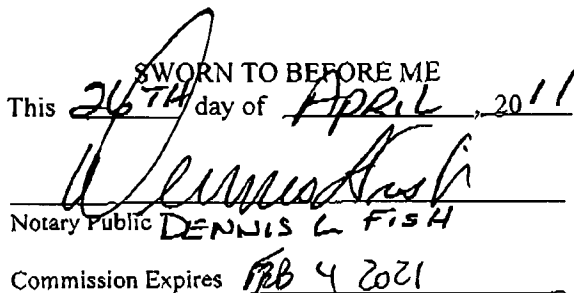 SWORN TO BEFORE ME
This 26TH day of APRIL, 2011
Dennis L Fish
Notary Public DENNIS L FISH
Commission Expires FEB 4 2021